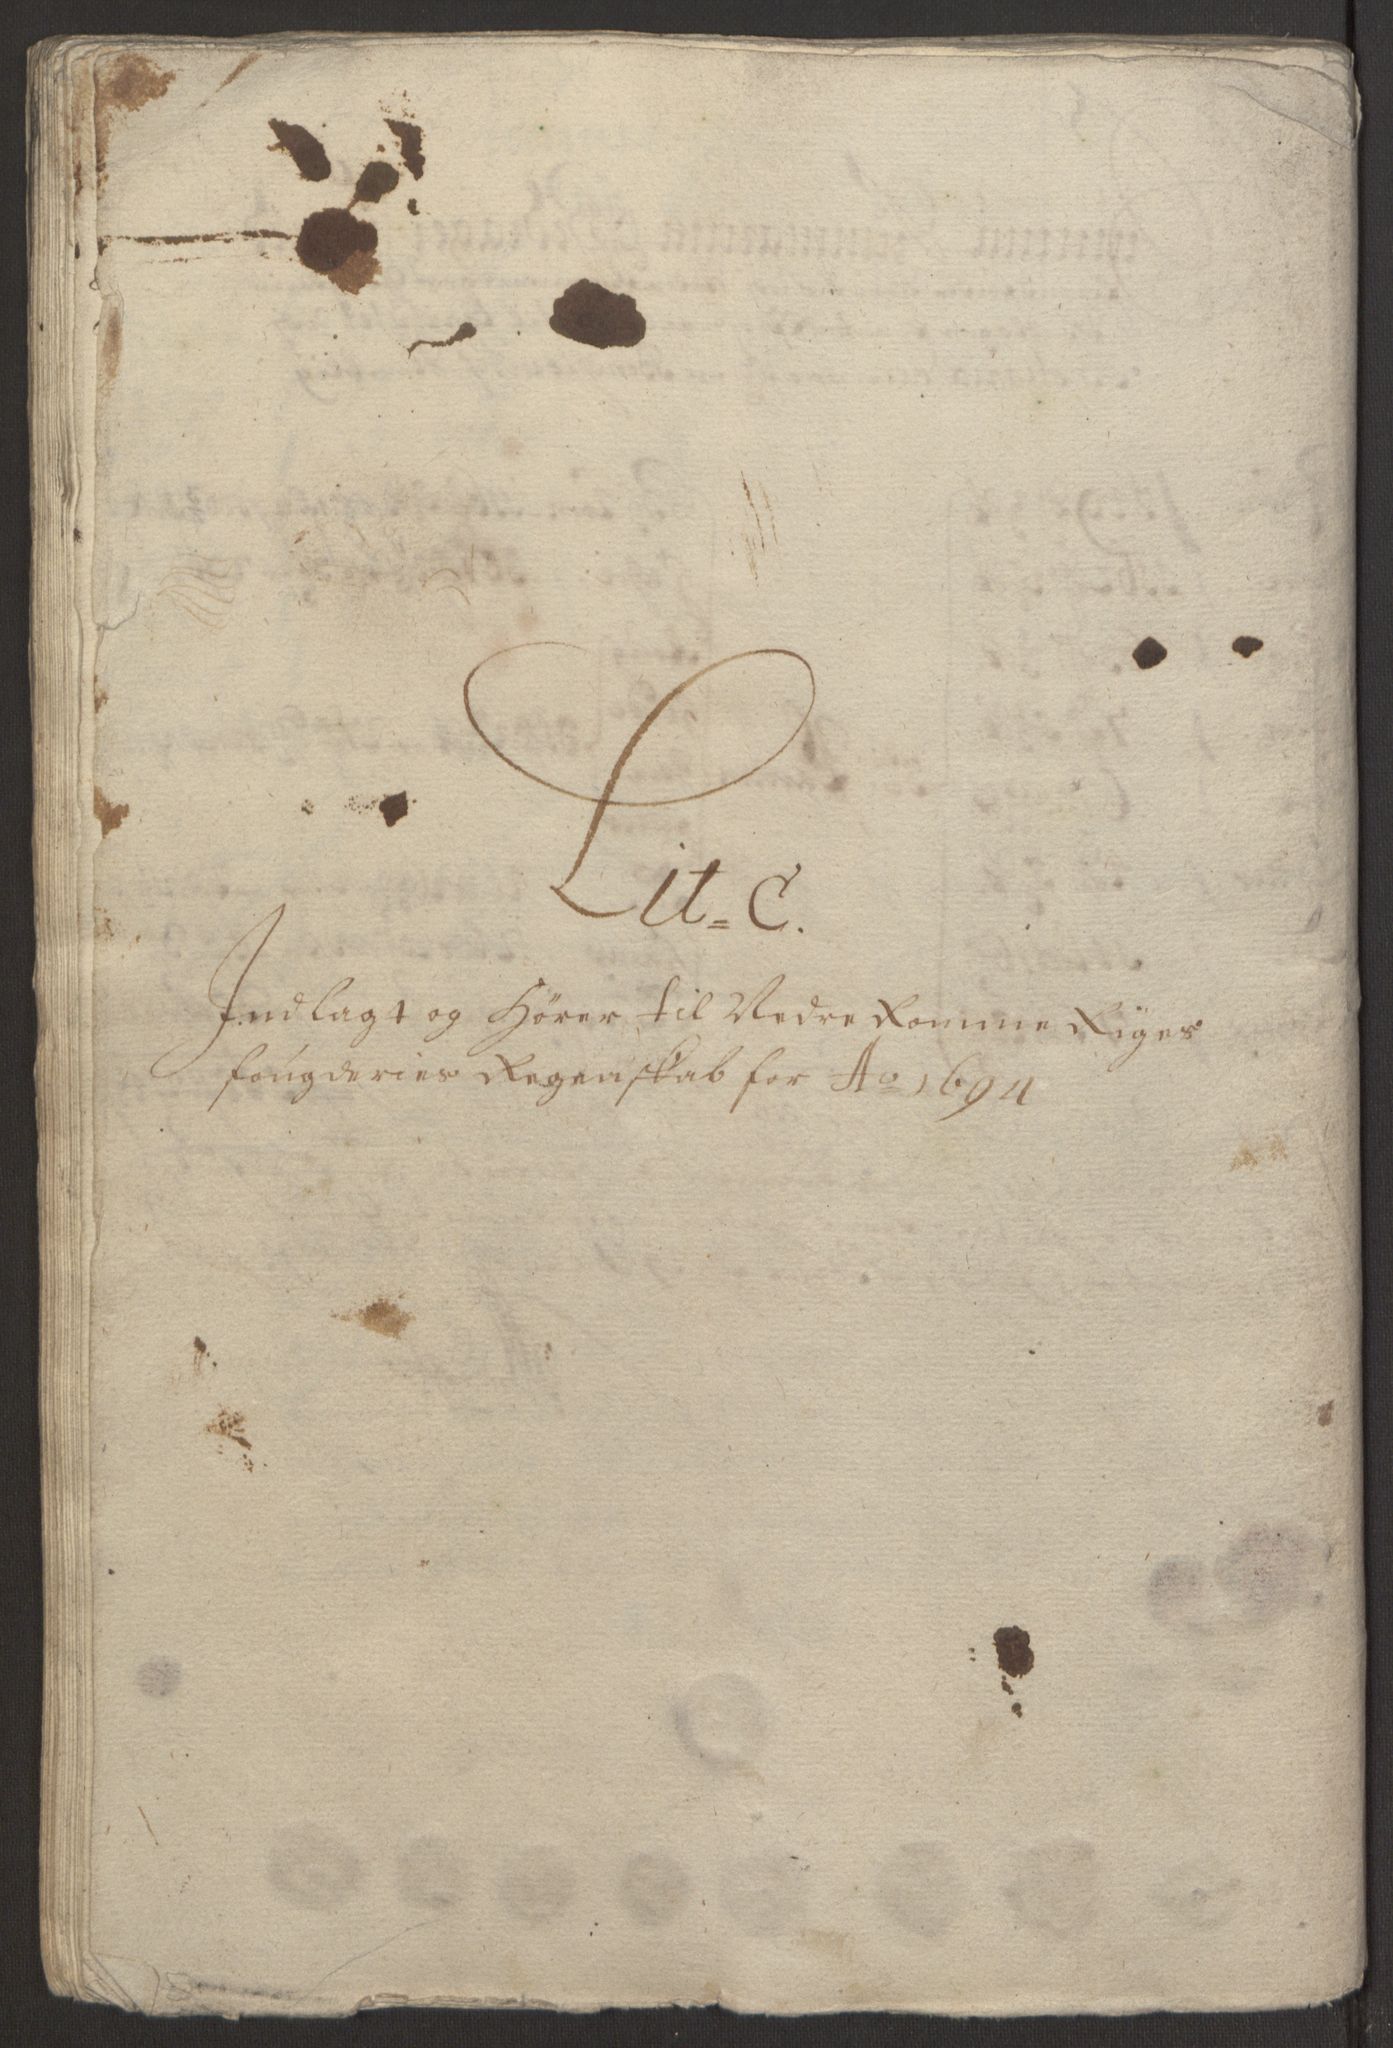 Lit=C.
Indlagt og Hörer til Nedre Romme Riges
fougderies Regenskab for Ao 1694